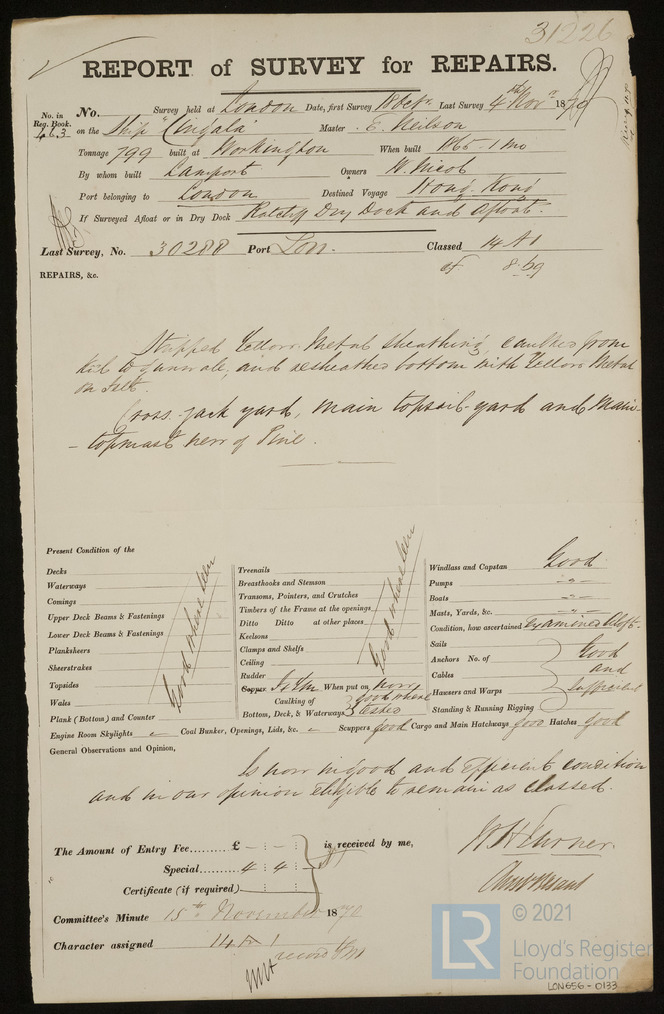 31226
REPORT of SURVEY for REPAIRS.
No. in Reg. Book. 463
No. Survey held at London Date, first Survey 18 Octr. Last Survey 4th Novr 1870
on the Ship "Cingala" Master E. Neilson
Tonnage 799 built at Workington When built 1866 - 1 mo
By whom built Lamport Owners W. Nicol
Port belonging to London Destined Voyage Hong Kong
If Surveyed Afloat or in Dry Dock Ratcliff Dry Dock and Afloat.
Last Survey, No. 30288 Port Lon. Classed 14 A1
of 8.69
REPAIRS, &c.
Stripped Yellow Metal Sheathing, caulked from
keel to gunwale, and resheathed bottom with Yellow Metal
on felt.
Cross-jack yard, main topsail-yard and main-
-topmast new of Pine.
Present Condition of the
Decks
Waterways
Comings
Upper Deck Beams & Fastenings
Lower Deck Beams & Fastenings
Planksheers
Sheerstrakes
Topsides
Wales
Plank (Bottom) and Counter
Good where seen
Treenails
Breasthooks and Stemson
Transoms, Pointers, and Crutches
Timbers of the Frame at the openings
Ditto Ditto at other places
Keelsons
Clamps and Shelfs
Ceiling
Rudder
Good where seen
Copper When put on now
Caulking of Bottom, Deck, & Waterways good where tested
Windlass and Capstan Good
Pumps - " -
Boats - " -
Masts, Yards, &c. - " -
Condition, how ascertained Examined Aloft.
Sails
Anchors No. of
Cables
Hausers and Warps
Standing & Running Rigging
Good and sufficient
Engine Room Skylights Coal Bunker, Openings, Lids, &c. Scuppers good Cargo and Main Hatchways good Hatches Good
General Observations and Opinion,
Is now in good and efficient condition
and in our opinion eligible to remain as classed.
The Amount of Entry Fee......... £ - : - : is received by me,
Special......... 4 : 4 :
Certificate (if required) - : - :
W H Turner
Committee's Minute 15th November 1870
Character assigned 14 A 1
LR
© 2021
Lloyd's Register
Foundation
LON656-0133